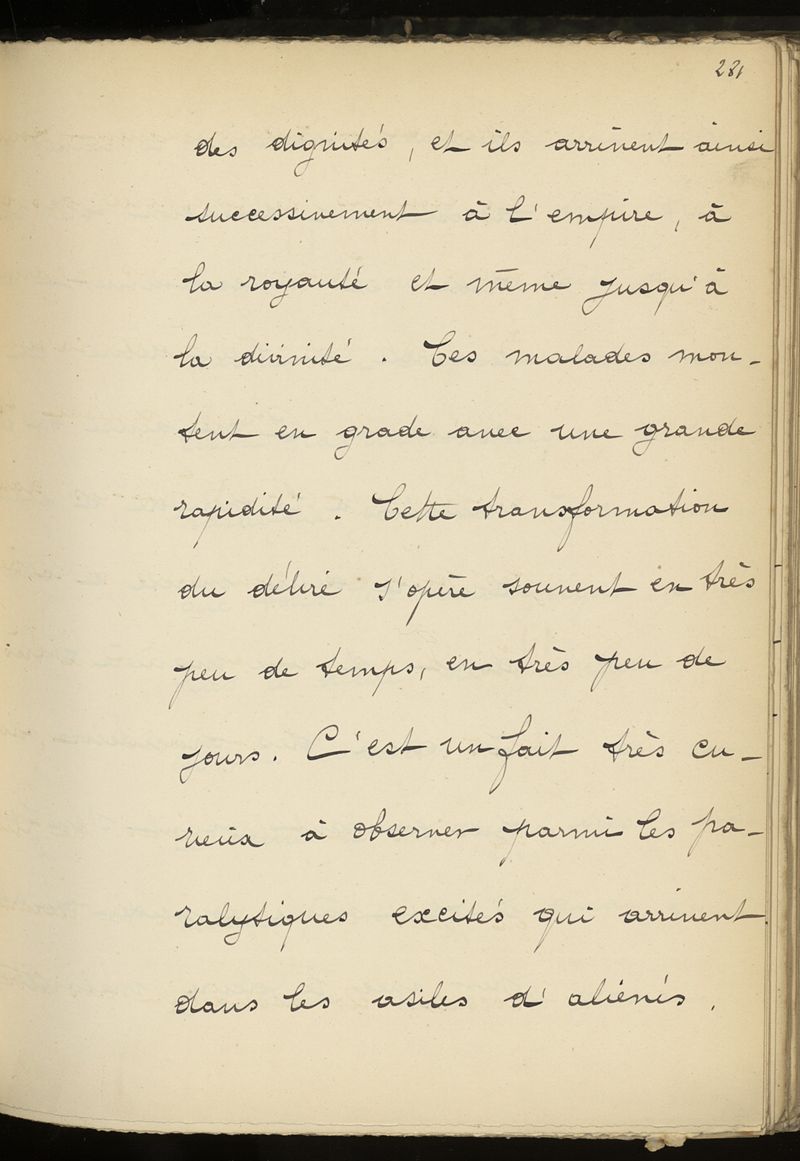 281
des dignités, et ils arrivent ainsi
successivement à l'empire, à
la royauté et même jusqu'à
la divinité. Ces malades mon-
tent en grade avec une grande
rapidité. Cette transformation
du délire s'opère souvent en très
peu de temps, en très peu de
jours. C'est un fait très cu-
rieux à observer parmi les pa-
ralytiques excités qui arrivent
dans les asiles d'aliénés.